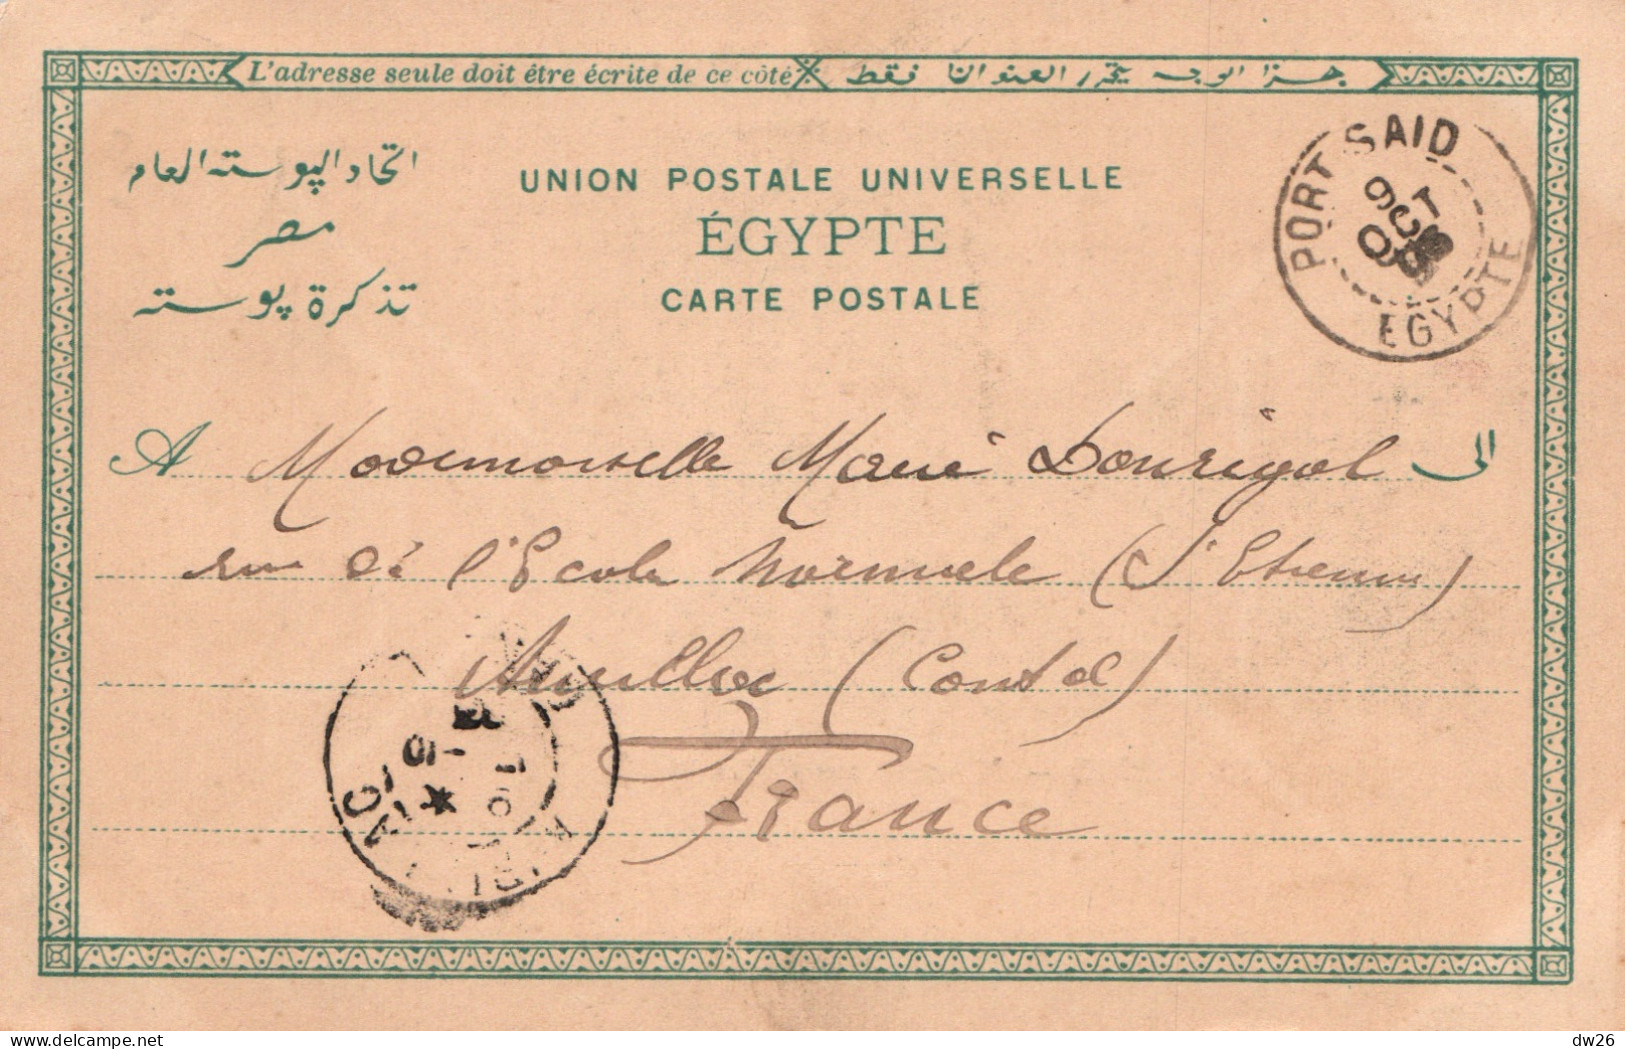 L'adresse seule doit être écrite de ce côté هذا الوجه يحرر العنوان فقط
اتحاد البوسته العام
مصر
تذكرة پوسته
UNION POSTALE UNIVERSELLE
ÉGYPTE
CARTE POSTALE
PORT SAID
9 OCT
EGYPTE
A Mademoiselle Marie Dourigal الى
rue de l'Ecole Normale (St Etienne)
Aurillac (Cantal)
France
dw26